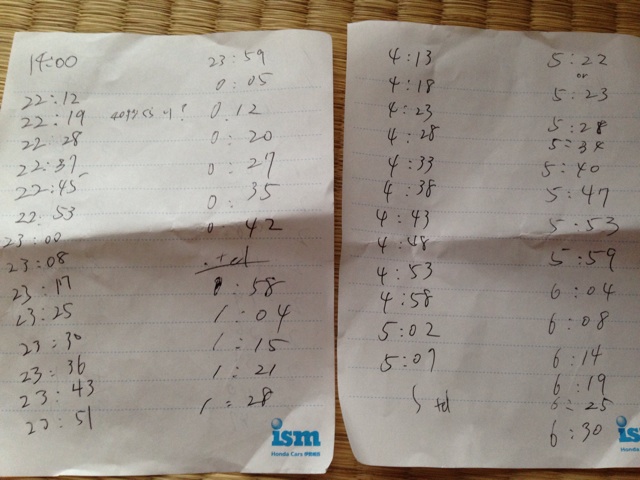 14:00
22:12
22:19
22:28
22:37
22:45
22:53
23:00
23:08
23:17
23:25
23:30
23:36
23:43
23:51
23:59
0:05
0.12
0:20
0:27
0:35
0:42
0:58
1:04
1:15
1:21
1:28
ism
Honda Cars
4:13
4:18
4:23
4:28
4:33
4:38
4:43
4:48
4:53
4:58
5:02
5:07
5:22
or
5:23
5:28
5:34
5:40
5:47
5:53
5:59
6:04
6:08
6:14
6:19
6:25
6:30
ism
Honda Cars